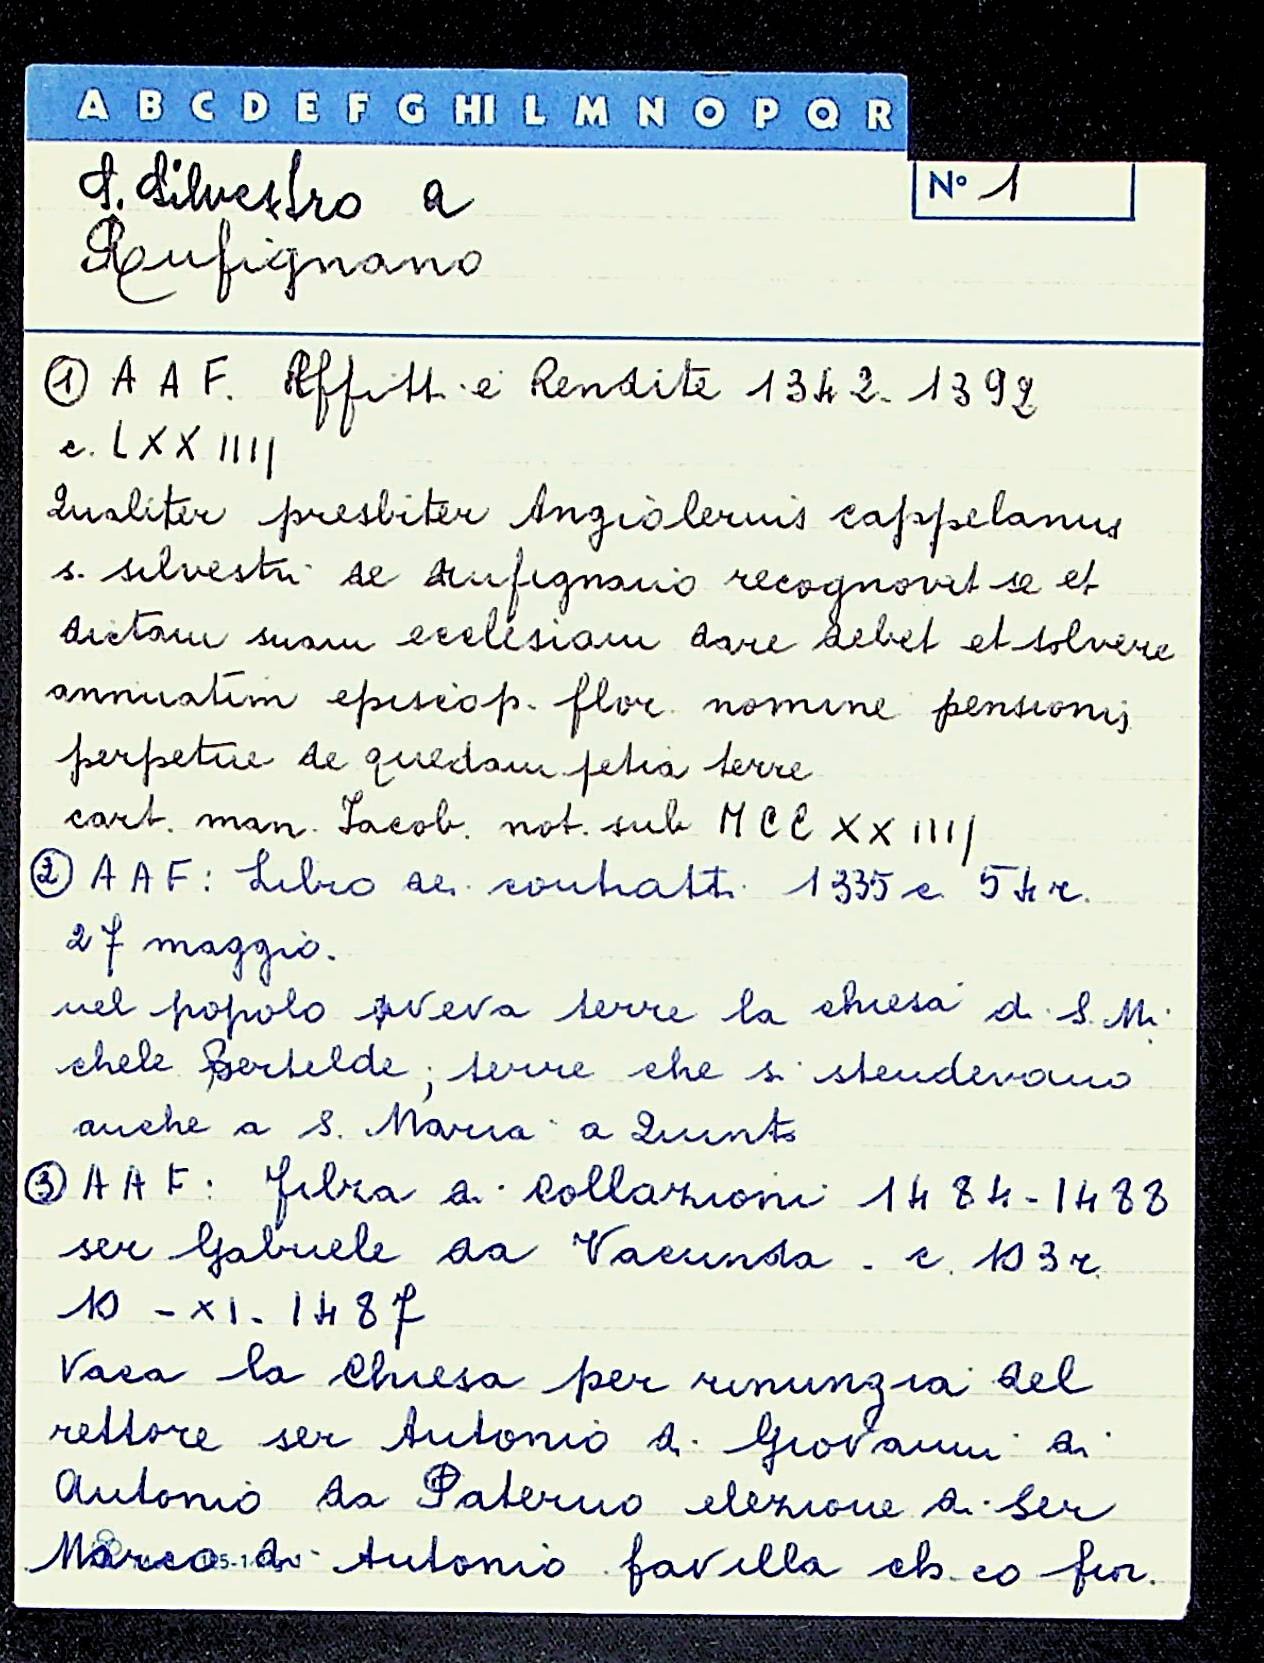 A B C D E F G HI L M N O P Q R
S. Silvestro a
Rufignano
N° 1
① A A F. Affitti e Rendite 1342-1392
c. LXXIIII
Qualiter presbiter Angiolerius cappelanus
s. silvestri de Rufignano recognovit se et
dictam suam ecclesiam dare debet et solvere
annuatim episcop. flor. nomine pensionis
perpetue de quedam petia terre
cart. man. Jacob. not. sub MCCXXIIII
② A A F: Libro dei contratti 1335 c. 54 r.
27 maggio.
nel popolo aveva terre la chiesa di S. Mi
chele Bertelde; terre che si stendevano
anche a S. Maria a Quinto
③ A A F: Filza di Collazioni 1484-1488
ser Gabriele da Vacunda - c. 103 r.
10 - XI - 1487
Vaca la Chiesa per rinunzia del
rettore ser Antonio di Giovanni di
Antonio da Paterno elezione di Ser
Marco di Antonio favilla ch.co fior.